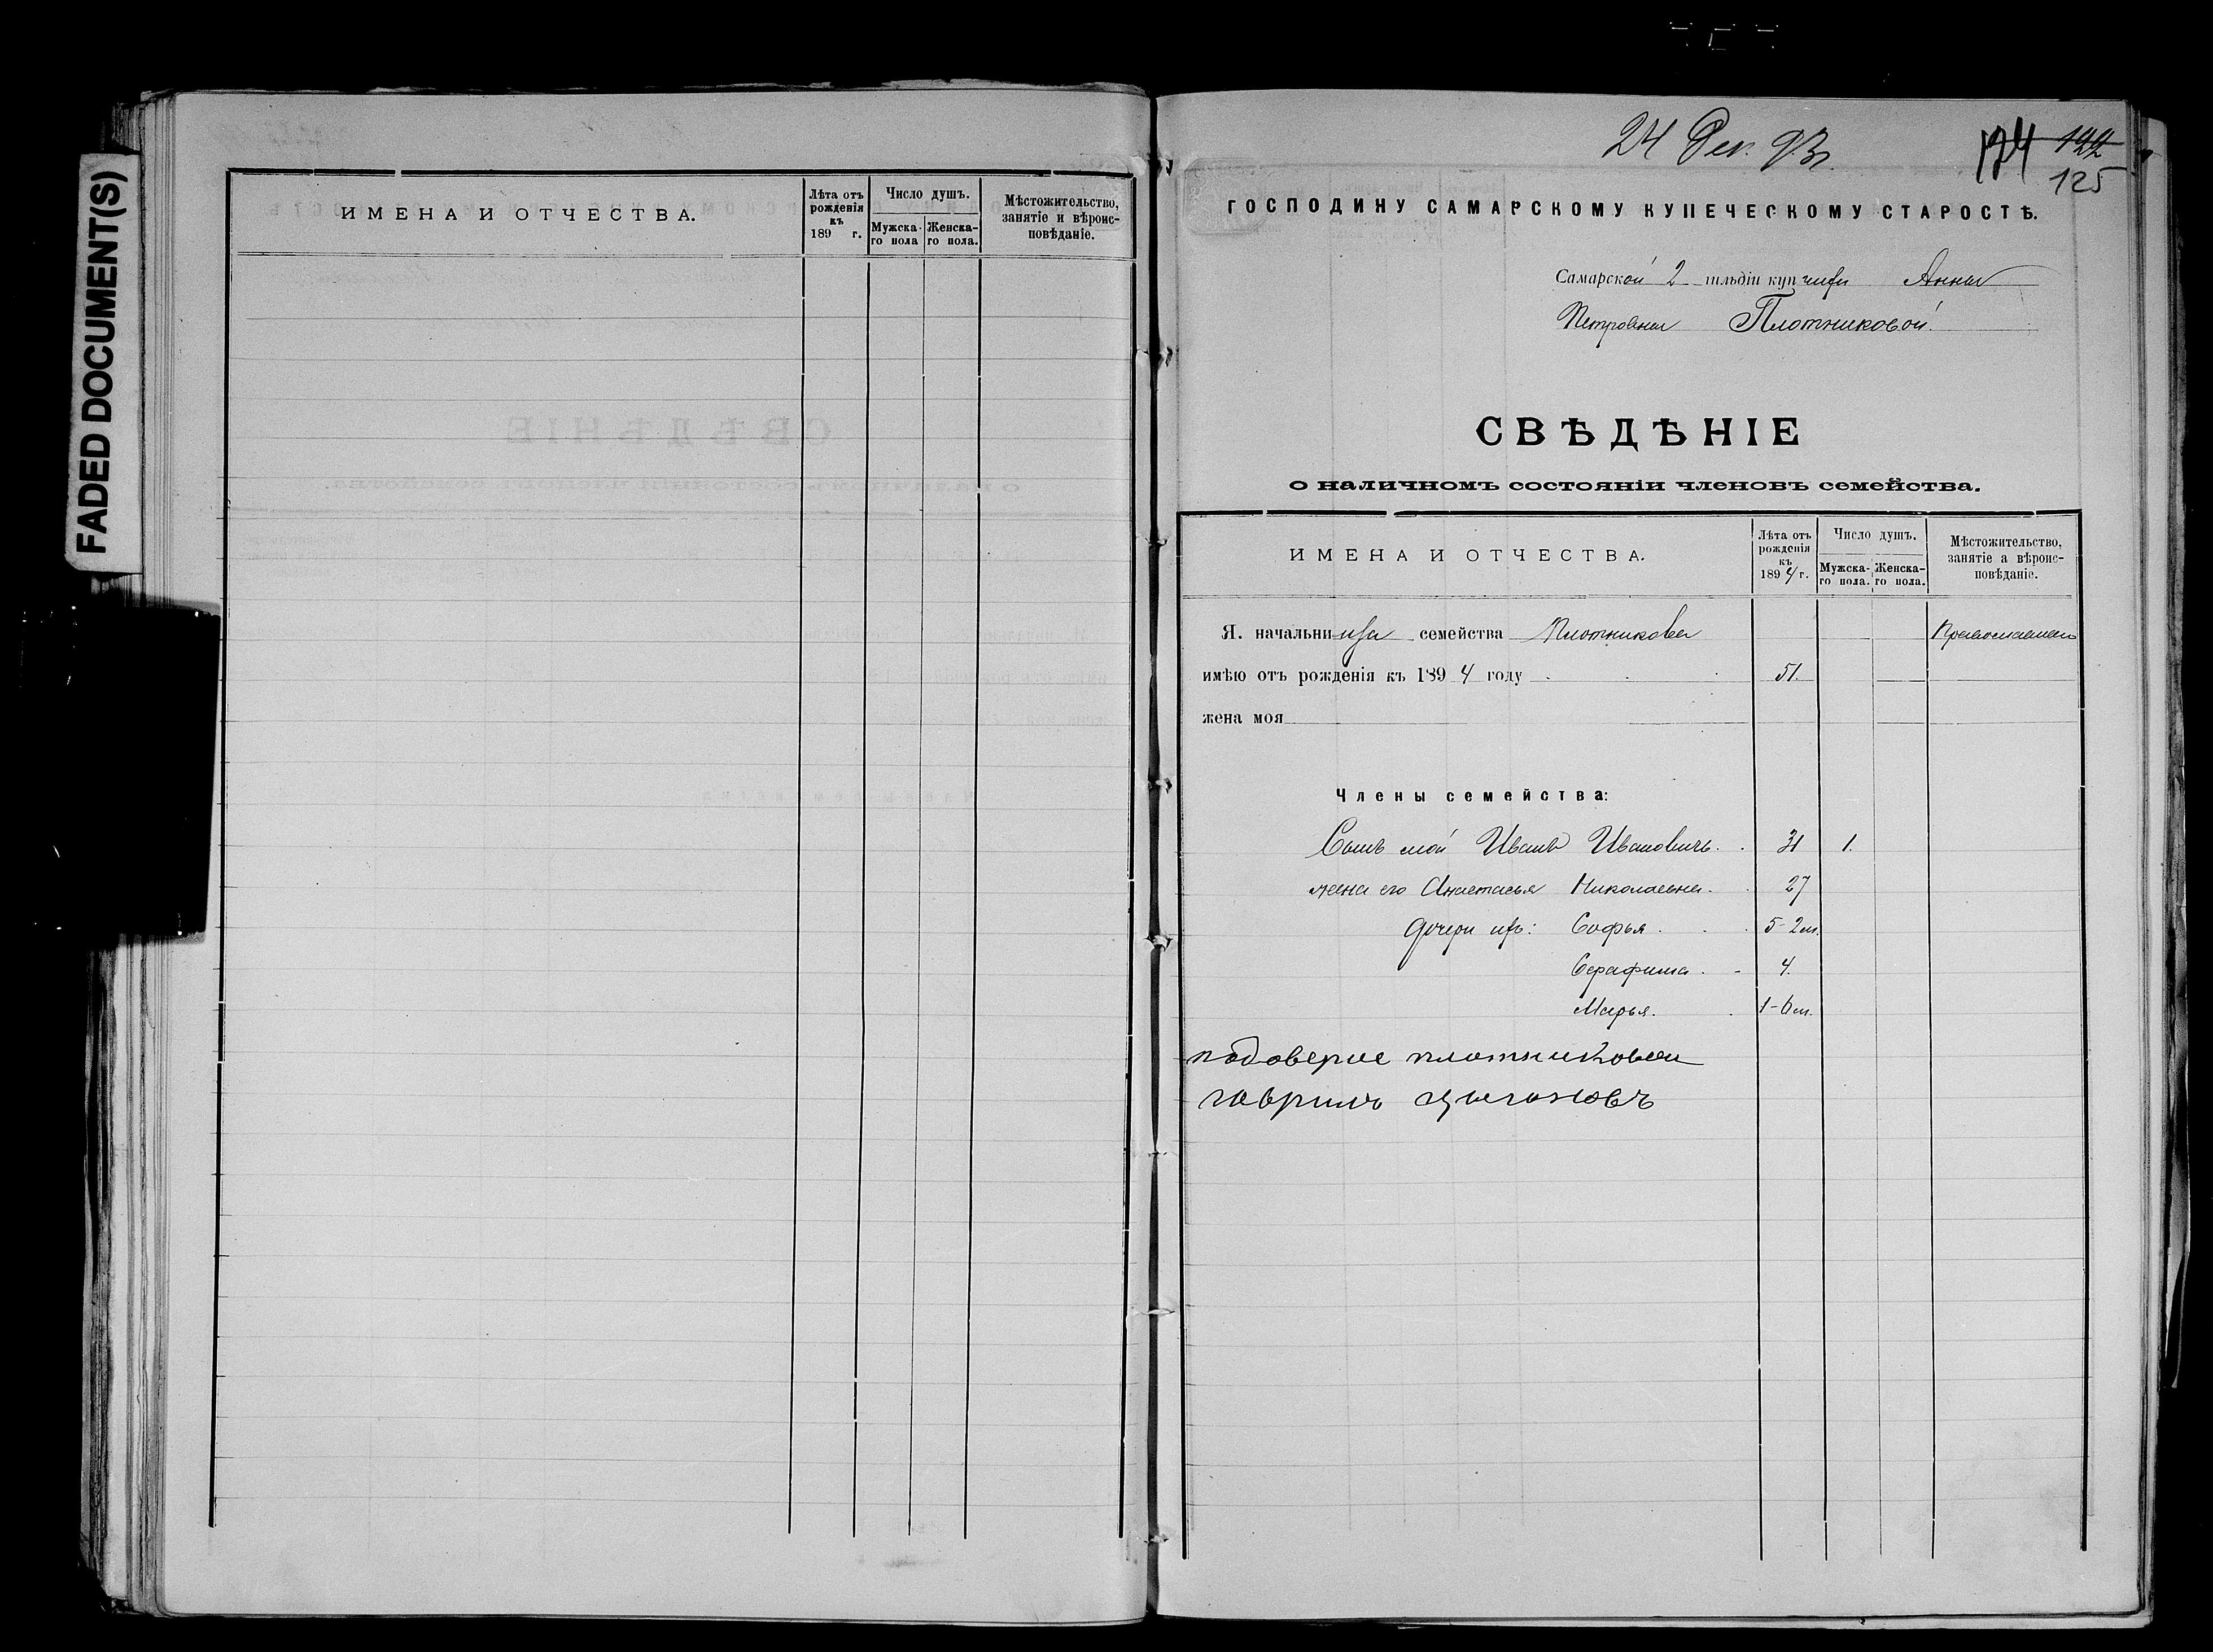 FADED DOCUMENT(S)
ИМЕНА И ОТЧЕСТВА.
Лѣта отъ рожденія къ 189 г.
Число душъ.
Мужска- го пола
Женска- го пола.
Мѣстожительство, занятіе и вѣроис- повѣданіе.
24 Дек. 93 г.
124 122
125
ГОСПОДИНУ САМАРСКОМУ КУПЕЧЕСКОМУ СТАРОСТѢ.
Самарской 2 гильдіи купчихи Анны
Петровны Плотниковой.
СВѢДѢНІЕ
о наличномъ состояніи членовъ семейства.
ИМЕНА И ОТЧЕСТВА.
Лѣта отъ рожденія къ 1894 г.
Число душъ.
Мужска- го пола.
Женска- го пола.
Мѣстожительство, занятіе а вѣроис- повѣданіе.
Я. начальница семейства Плотникова
имѣю отъ рожденія къ 1894 году 51.
жена моя
Члены семейства:
Сынъ мой Иванъ Ивановичъ. 31 1.
жена его Анастасья Николаевна. 27
дочери ихъ: Софья. 5-2 м.
Серафима. 4.
Марья. 1-6 м.
подоверие плотниковои
гаврилъ цыгановъ